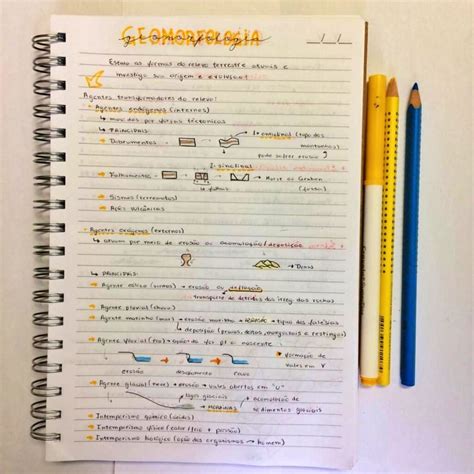 GEOMORFOLOGIA
geomorfologia
Estuda as formas do relevo terrestre atuais e
investiga sua origem e evolução
Agentes transformadores do relevo:
Agentes endógenos (internos)
movidos por forças tectônicas
PRINCIPAIS:
Dobramentos
1- anticlinal (topo das montanhas)
pode sofrer erosão
2- sinclinal
Falhamentos
Horst ou Graben
falhas
(fossa)
Sismos (terremotos)
Ação vulcânica
Agentes exógenos (externos)
atuam por meio de erosão ou acumulação/deposição
Dunas
PRINCIPAIS:
Agente eólico (ventos) → erosão ou deflação
transporte de detritos das rochas
Agente pluvial (chuva)
Agente marinho (mar) → erosão marinha → tipos das falésias
deposição (praias, deltas, mangues e restingas)
Agente fluvial (rio)
formação de
vales em V
erosão
Agente glacial (neve) → erosão → vales abertos em "U"
lagos glaciais
acumulação de
morainas
sedimentos glaciais
Intemperismo químico (ácidos)
Intemperismo físico (calor/frio + pressão)
Intemperismo biológico (ação dos organismos → homem)